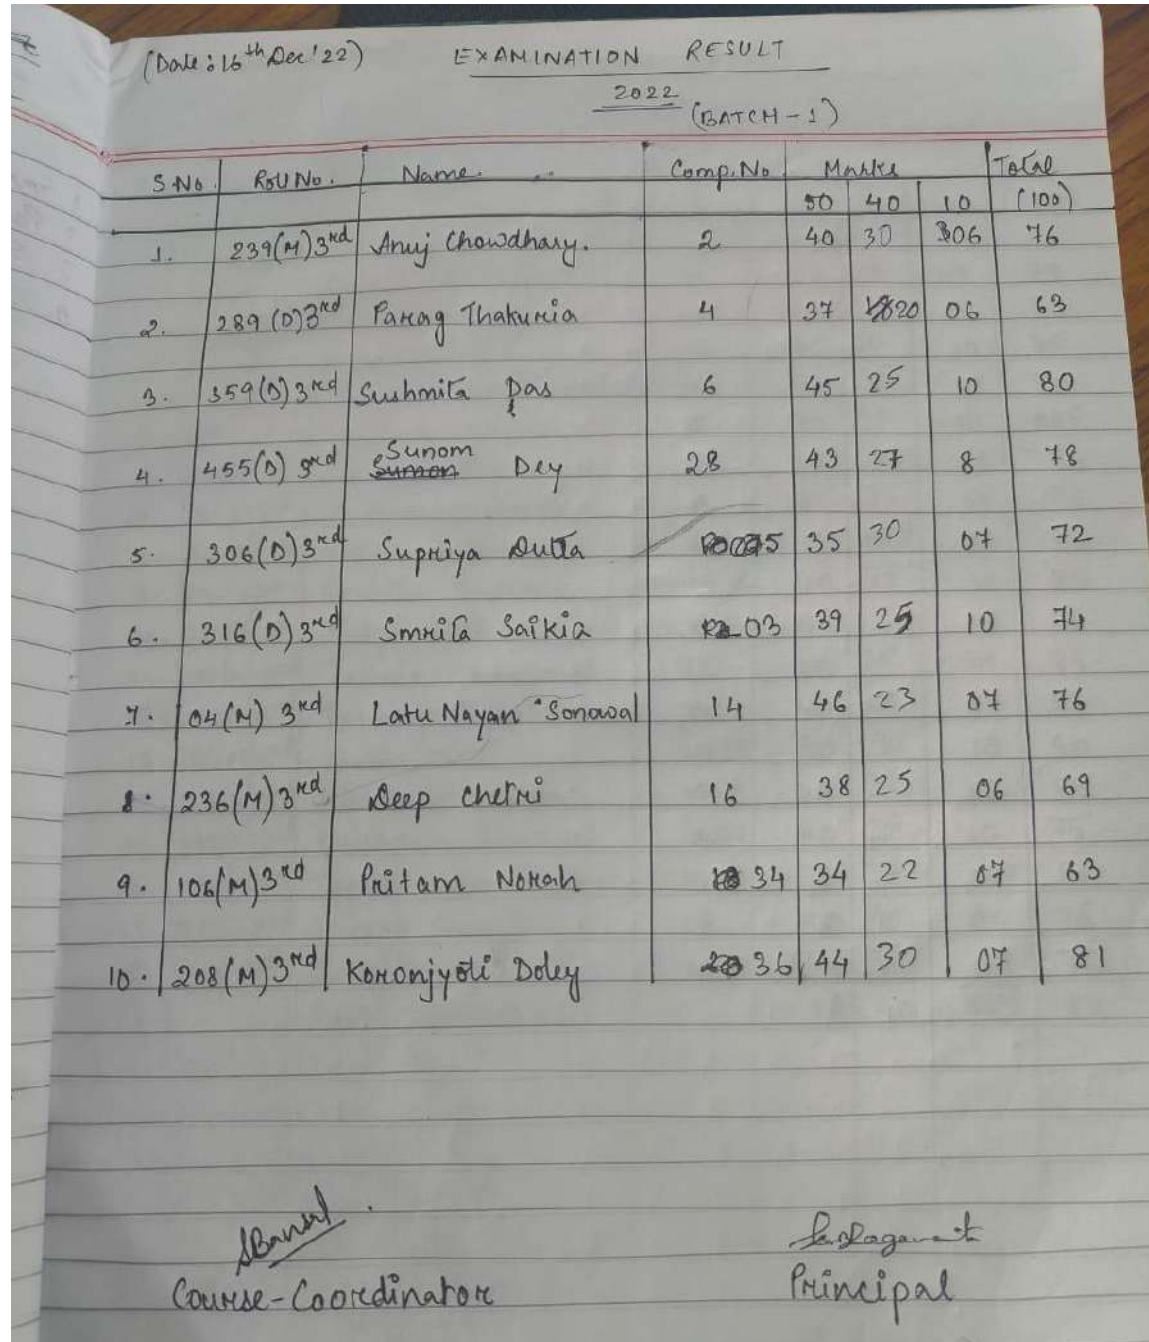 (Date : 16th Dec '22) EXAMINATION RESULT
2022
(BATCH - 1)
S.No. Roll No. Name. Comp. No Marks Total
50 40 10 (100)
1. 239(M) 3rd Anuj Chowdhary. 2 40 30 06 76
2. 289 (D) 3rd Parag Thakuria 4 37 20 06 63
3. 359(D) 3rd Sushmita Das 6 45 25 10 80
4. 455(D) 3rd Sunom Dey 28 43 27 8 78
5. 306(D) 3rd Supriya Dutta 5 35 30 07 72
6. 316(D) 3rd Smrita Saikia 03 39 25 10 74
7. 04(M) 3rd Latu Nayan Sonowal 14 46 23 07 76
8. 236(M) 3rd Deep Chetri 16 38 25 06 69
9. 106(M) 3rd Pritam Norah 34 34 22 07 63
10. 208(M) 3rd Koronjyoti Doley 36 44 30 07 81
SBansal
Course-Coordinator Principal